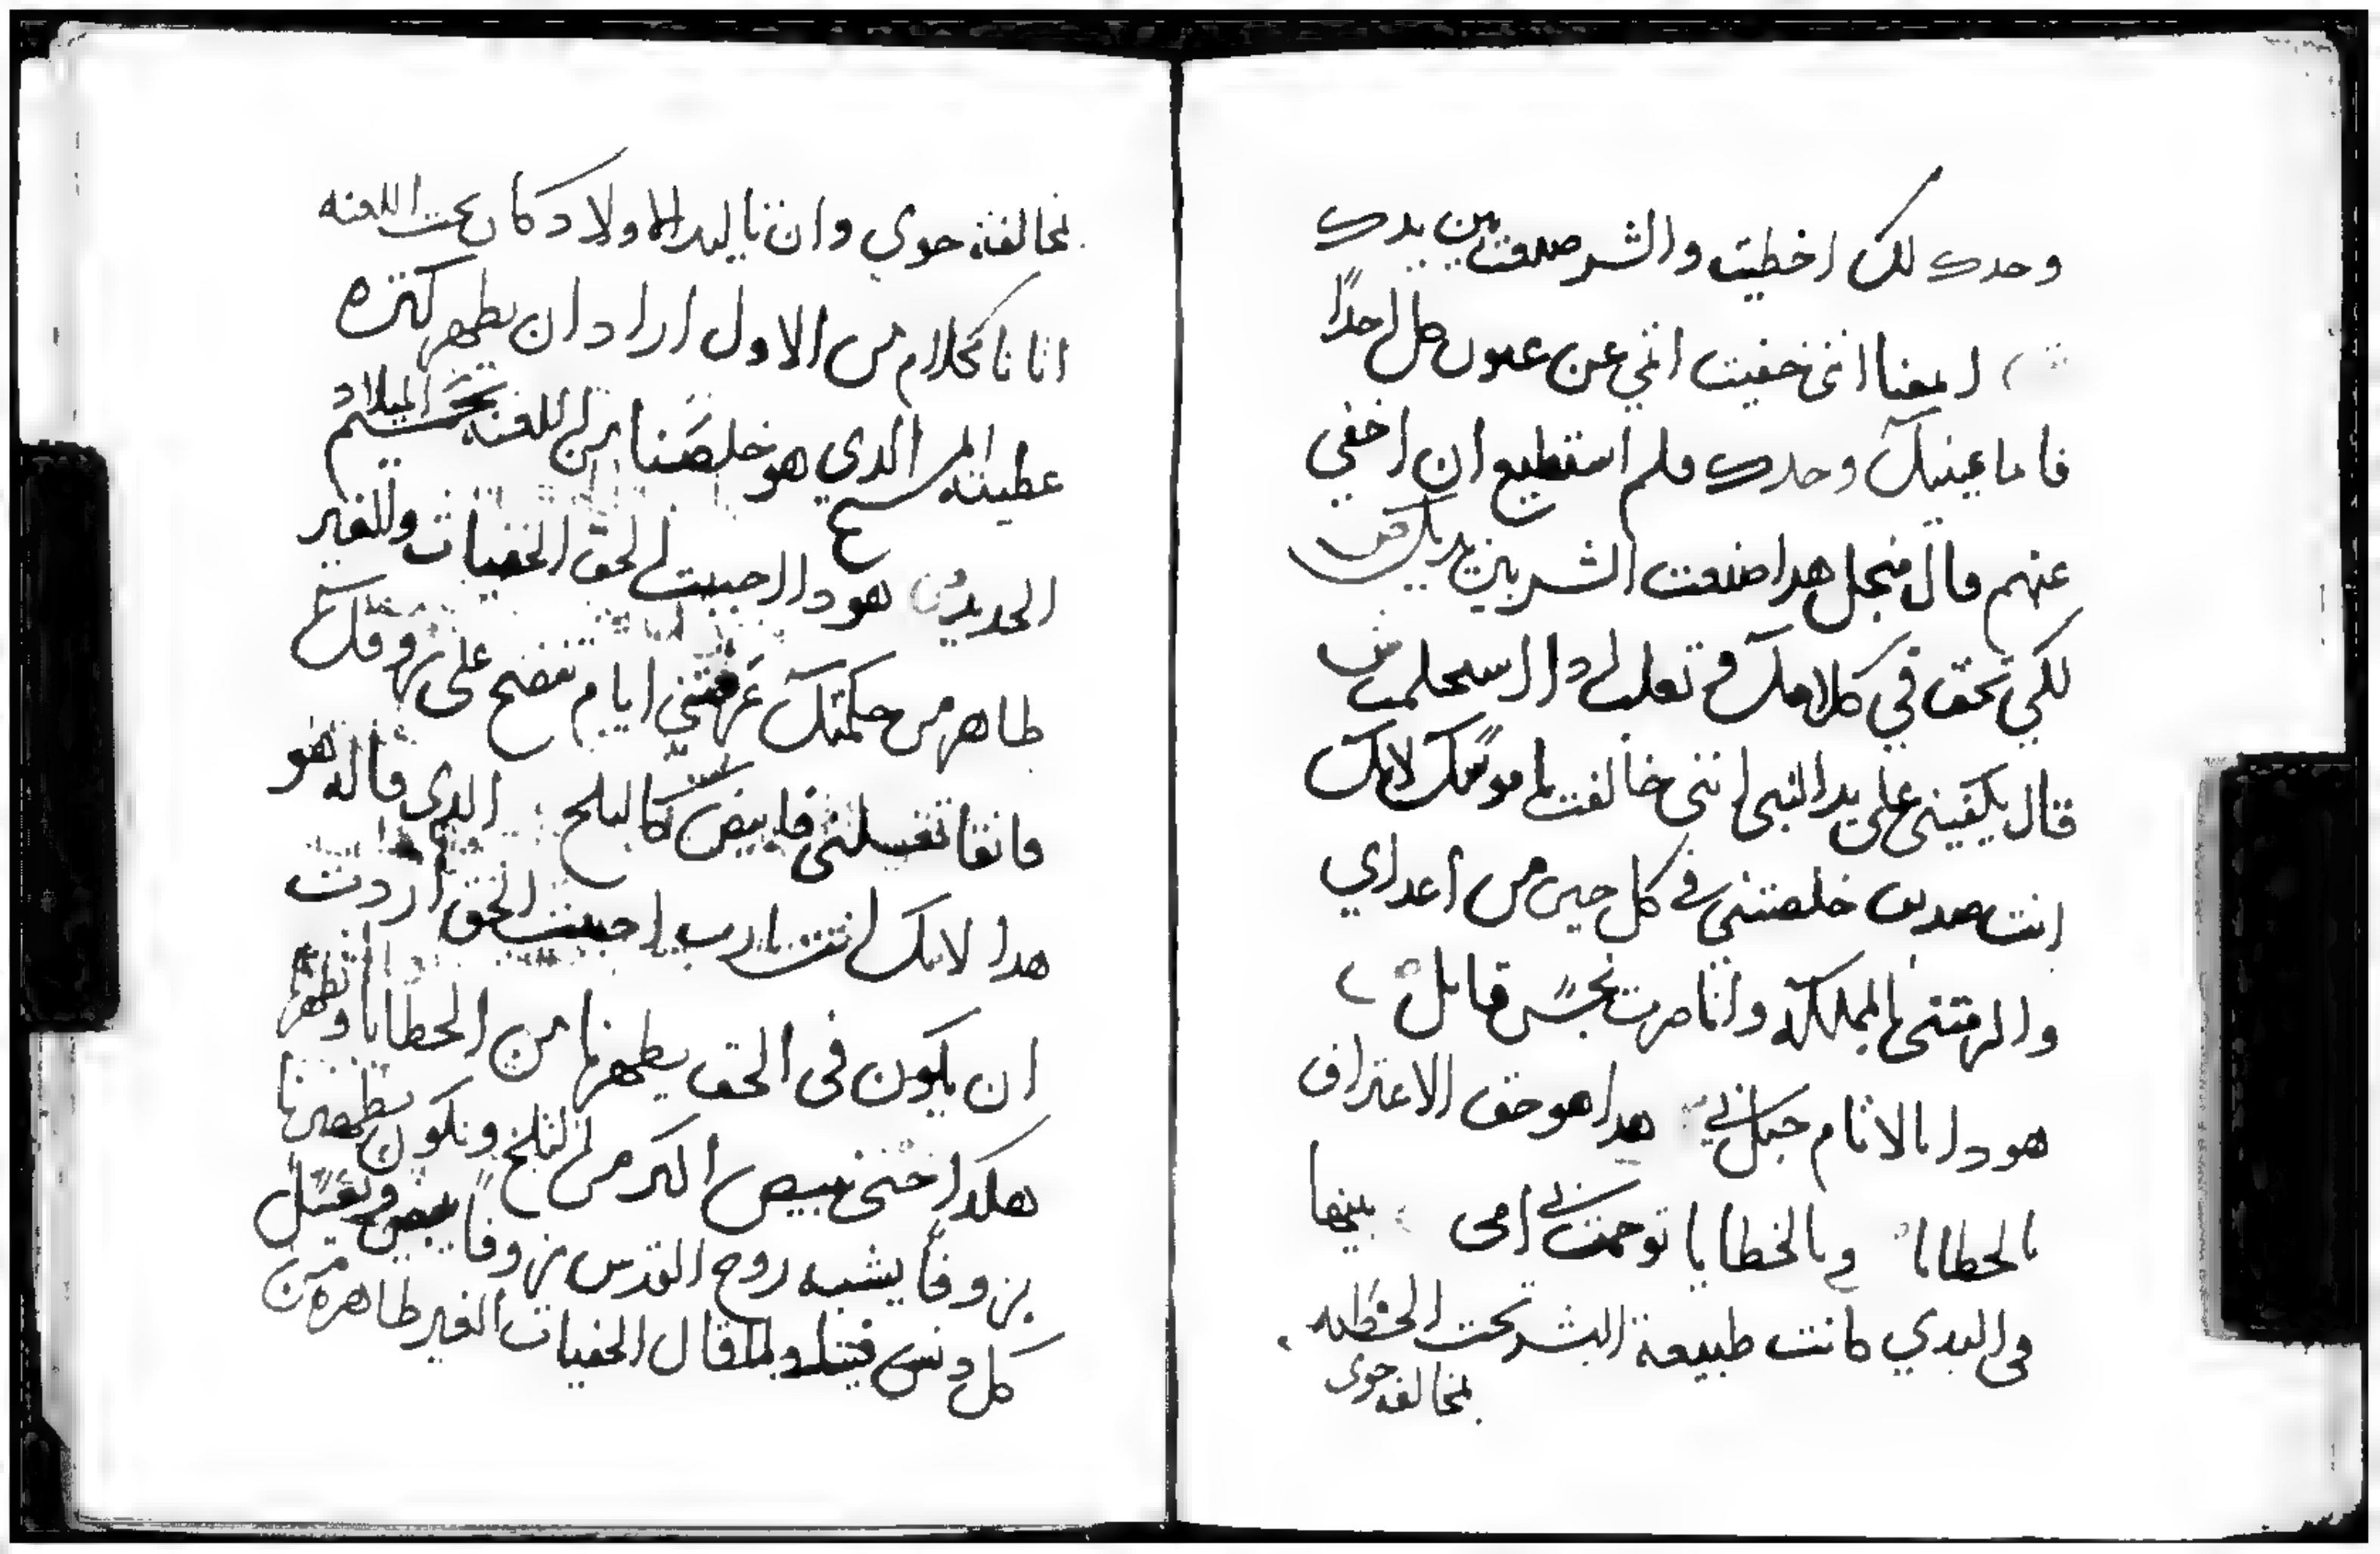 وحدك لك اخطيت والشر صنعت بين يديك
امعنا اننى خفيت اثمي عن عيون كل احدًا
فاما عينيك وحدك فلم استطيع ان اخفي
عنهم قال فمجل هدا صنعت الشر بين يديك
لكي تحق في كلامك وتغلب ادا استحكمت
قال يكفينى على يد النبى اننى خالفت ناموسك لانك
انت صدىق خلصتنى في كل حين من اعداي
والهمتنى بالمملكه وانا صرت نجسًا قايل
هودا بالاثام حبل بي هدا هو حق الاعتراف
بالخطايا وبالخطايا توحمت بي امى بينها
فى البدي كانت طبيعة البشر تحت الخطيه
بمخالفة حوى
بمخالفة حوي وان تاليد الاولاد كان تحت اللعنه
انا نا كلام من الاول اراد ان يظهر كثره
عطيته المسيح الدي هو خلصنا من اللعنه بحسم الميلاد
الجديد هودا احببت الحق الخفيات والغير
ظاهره من حكمتك عرفتني ايام تنضح على بزوفك
فانقا تغسلنى فابيض كالثلج الدى قاله هو
هدا لانك انت يارب احببت الحق اردت
ان يكون فى الحق يطهرنا من الخطايا وتطهرنا
هكدا حتى نبيض اكتر من الثلج ونكون يطهرنا
بزوفًا يشبه روح القدس بزوفًا يبيض ويغسل
كل دنس فينا ولما قال الخفيات الغير ظاهره من